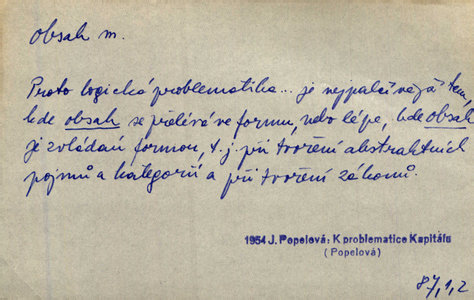 obsah m.
Proto logická problematika... je nejpalčivější tam,
kde obsah se přelévá ve formu, nebo lépe, kde obsah
je zvládán formou, t.j. při tvoření abstraktních
pojmů a kategorií a při tvoření zákonů.
1954 J. Popelová: K problematice Kapitálu
(Popelová)
87,1,2